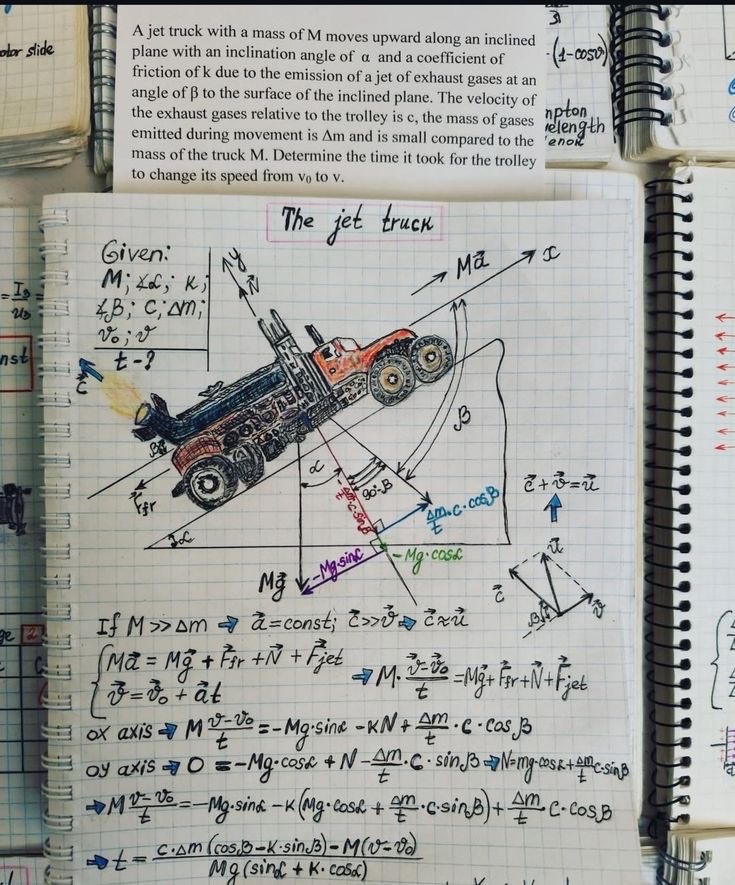 A jet truck with a mass of M moves upward along an inclined
plane with an inclination angle of α and a coefficient of
friction of k due to the emission of a jet of exhaust gases at an
angle of β to the surface of the inclined plane. The velocity of
the exhaust gases relative to the trolley is c, the mass of gases
emitted during movement is Δm and is small compared to the
mass of the truck M. Determine the time it took for the trolley
to change its speed from v₀ to v.
slide
(1-cosϑ)
The jet truck
Given:
M; ∡α; k;
∡β; c; Δm;
v₀; v
t-?
y
N⃗
Ma⃗
x
c⃗
β
β
F⃗fr
α
90°-β
-Δm/t·c·sinβ
Δm/t·c·cosβ
c⃗+v⃗=u⃗
∡α
-Mg·sinα
-Mg·cosα
Mg⃗
u⃗
c⃗
β
v⃗
If M>>Δm ⇒ a⃗=const; c⃗>>v⃗ ⇒ c⃗≈u⃗
Ma⃗ = Mg⃗ + F⃗fr + N⃗ + F⃗jet
v⃗ = v⃗₀ + a⃗t
⇒ M·(v⃗-v⃗₀)/t = Mg⃗+F⃗fr+N⃗+F⃗jet
ox axis ⇒ M (v-v₀)/t = -Mg·sinα - kN + Δm/t·c·cosβ
oy axis ⇒ 0 = -Mg·cosα + N - Δm/t·c·sinβ ⇒ N=mg·cosα+Δm/t c·sinβ
⇒ M (v-v₀)/t = -Mg·sinα - k(Mg·cosα + Δm/t·c·sinβ) + Δm/t c·cosβ
⇒ t = (c·Δm(cosβ-k·sinβ)-M(v-v₀))/(Mg(sinα + k·cosα))